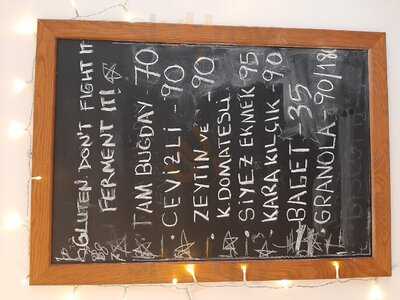 GLUTEN. DON'T FIGHT IT
FERMENT IT!
TAM BUĞDAY 70
• CEVİZLİ - 90
ZEYTİN VE - 90
K.DOMATESLİ
• SİYEZ EKMEK 95
• KARAKILÇIK - 90
BAGET - 35
• GRANOLA - 90/180